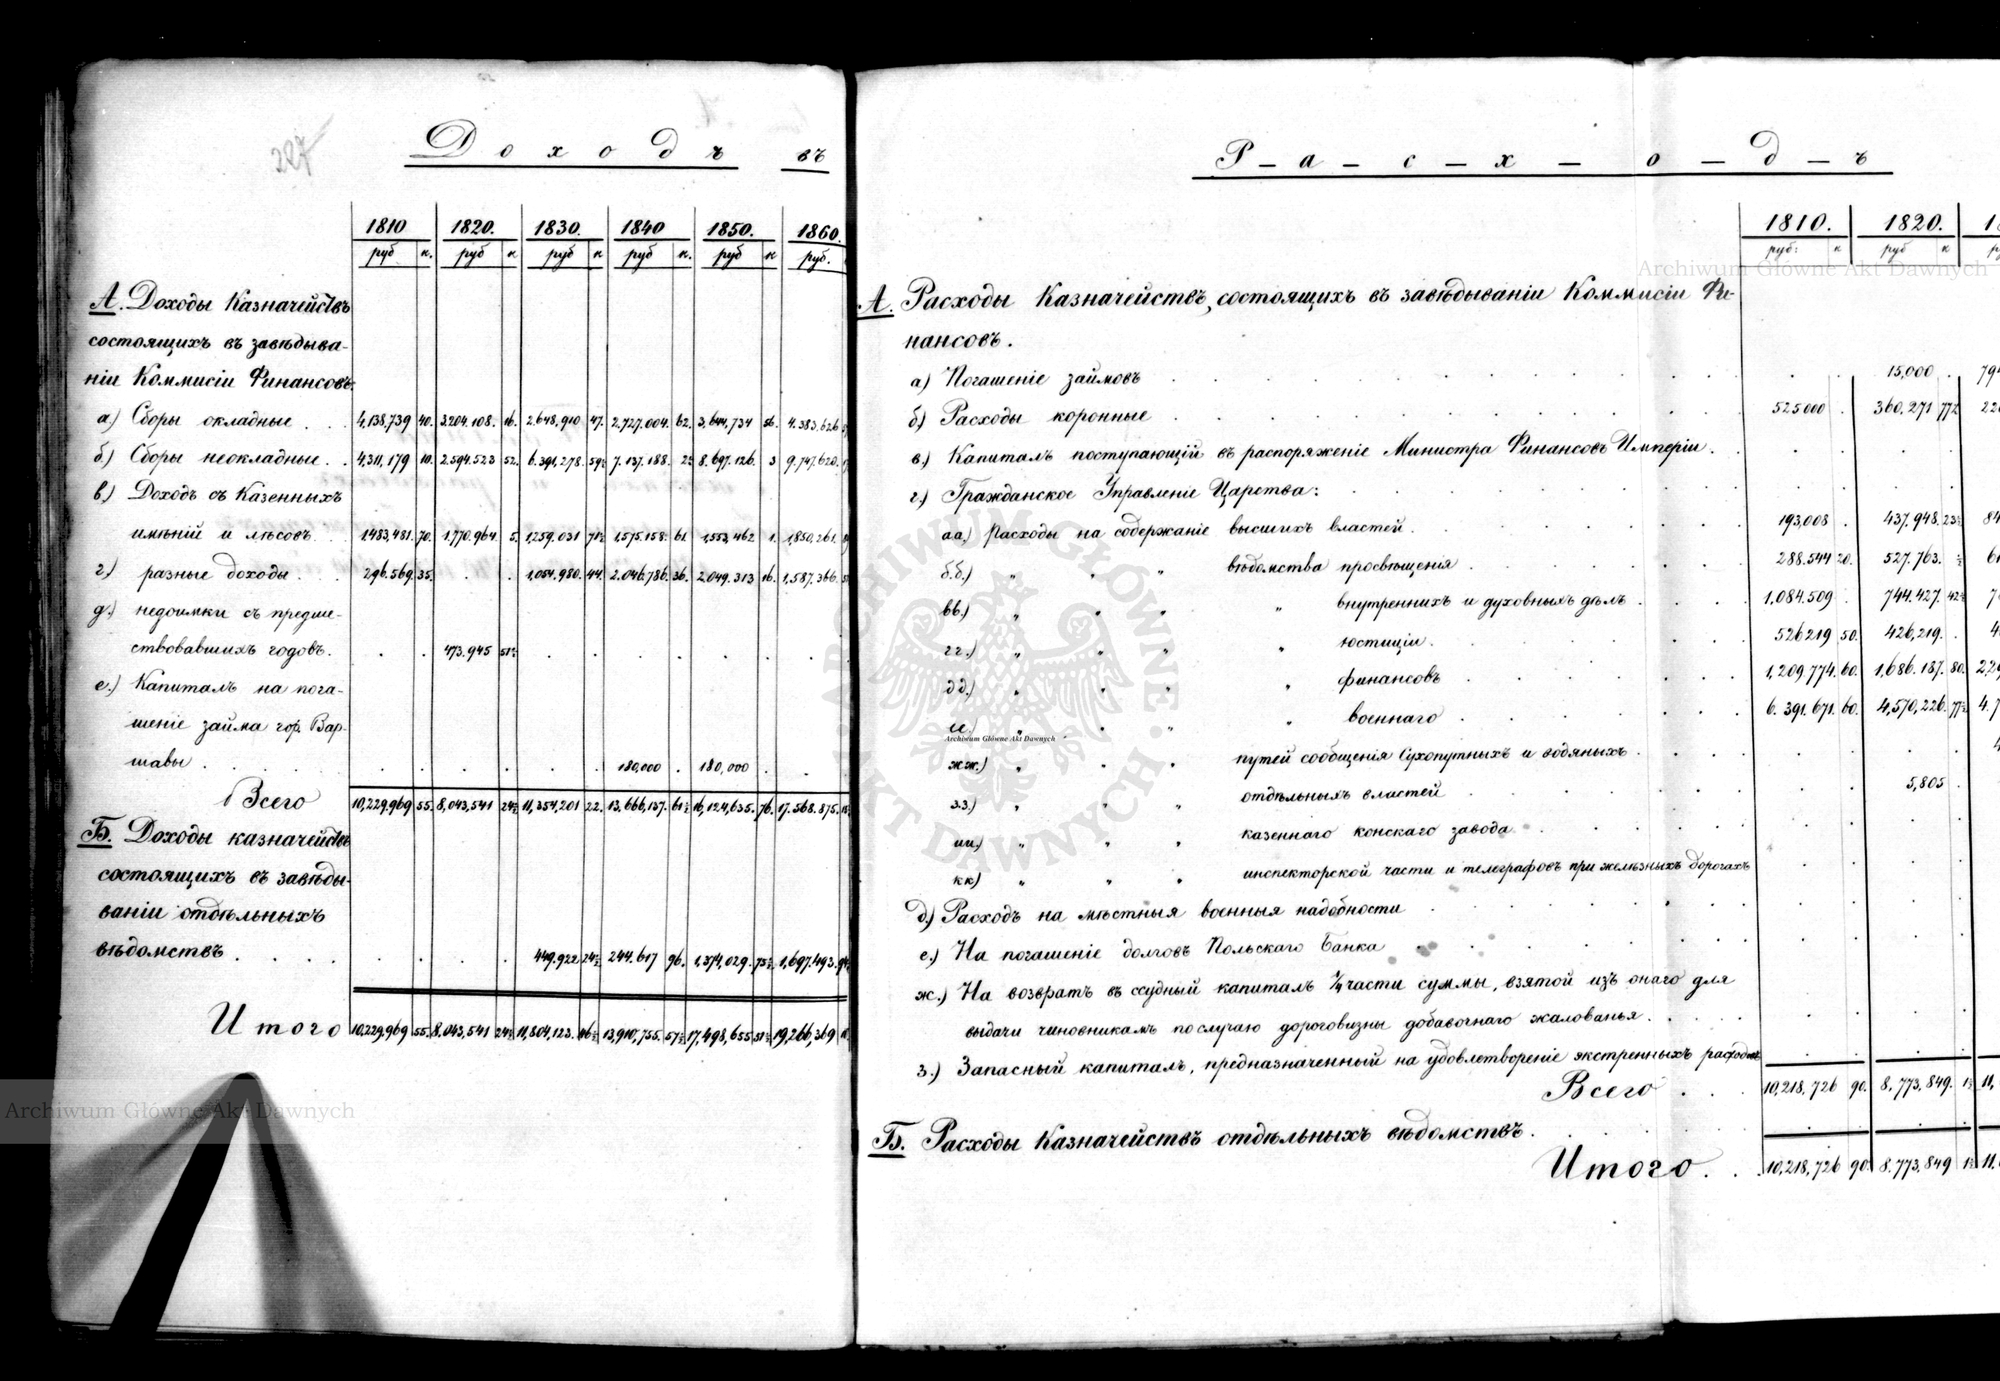 227
Доходъ въ
1810 1820. 1830. 1840 1850. 1860.
руб к. руб к руб к руб к. руб к руб.
А. Доходы Казначействъ
состоящихъ въ завѣдыва-
ніи Коммисіи Финансовъ.
а) Сборы окладные . . 4,138,739 40. 3.204.108. 16. 2.648,910 47. 2.727.004. 62. 3,644,734 56. 4.383.626
б) Сборы неокладные . . 4,311,179 10. 2.594.523 52. 6.391,278. 59½ 7.137.188. 8.697.126. 3 9.747.620.
в) Доходъ съ Казенныхъ
имѣній и лѣсовъ . 1,483,481. 70. 1.770.964. 5. 1,259.031 71½ 1,575.158. 61 1,553,462 1. 1,850,261.
г.) разные доходы . . 296.569. 35. . . 1,054.980. 44. 2.046.786. 36. 2.049.313 16. 1,587.366.
д.) недоимки съ предше-
ствовавшихъ годовъ. . . 473.945 51½ . . . . . . . .
е.) Капиталъ на пога-
шеніе займа гор. Вар-
шавы . . . . . . . . 180,000 . 180,000 . .
Всего 10,229,969 55. 8,043,541 24½ 11,354,201 22. 13,666,137. 61½ 16,124,635. 76. 17.568.875.
Б. Доходы казначействъ
состоящихъ въ завѣды-
ваніи отдѣльныхъ
вѣдомствъ . . . . . . . 449.922 24½ 244.617 96. 1,374,029. 75½ 1,697.493.
Итого 10,229,969 55. 8,043,541 24½ 11,804,123. 46½ 13,910,755. 57½ 17,498,655 51½ 19,266,369
Р-а-с-х-о-д-ъ
1810. 1820.
руб: к руб к
А. Расходы Казначействъ, состоящихъ въ завѣдываніи Коммисіи Фи-
нансовъ.
а) Погашеніе займовъ . . . . . . 15,000 .
б.) Расходы коронные . . . . . 525000 . 360,271 77½
в.) Капиталъ поступающій въ распоряженіе Министра Финансовъ Имперіи . . . . .
г.) Гражданское Управленіе Царства: . . . . .
аа.) Расходы на содержаніе высшихъ властей . . . . . 193,008 . 437.948. 23½
б.б.) " " " вѣдомства просвѣщенія . . . . . 288.544 20. 527.763. ½
вв.) " " " " внутреннихъ и духовныхъ дѣлъ . . . 1,084.509 . 744.427. 42½
гг.) " " " " юстиціи . . . . . 526219 50. 426,219. .
дд.) " " " " финансовъ . . . . 1,209.774. 60. 1,686.187. 80.
ее.) " " " " военнаго . . . . 6.391.671. 60. 4,570,226. 77½
жж.) " " " путей сообщенія Сухопутныхъ и водяныхъ . . . . .
з.з.) " " " отдѣльныхъ властей . . . . . 5,805 .
ии.) " " " казеннаго конскаго завода . . . . .
кк) " " " инспекторской части и телеграфовъ при желѣзныхъ дорогахъ
д.) Расходъ на мѣстныя военныя надобности . . . . .
е.) На погашеніе долговъ Польскаго Банка . . . . .
ж.) На возвратъ въ ссудный капиталъ ¼ части суммы, взятой изъ онаго для
выдачи чиновникамъ по случаю дороговизны добавочнаго жалованья . . . . .
з.) Запасный капиталъ, предназначенный на удовлетвореніе экстренныхъ расходовъ
Всего . . . 10,218,726 90. 8,773,849. 1½ 11,
Б. Расходы Казначействъ отдѣльныхъ вѣдомствъ. . . . . .
Итого . . 10,218,726 90. 8.773,849 1½ 11.
Archiwum Główne Akt Dawnych
Archiwum Główne Akt Dawnych
Archiwum Główne Akt Dawnych
ARCHIWUM GŁÓWNE AKT DAWNYCH